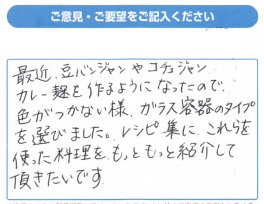 ご意見・ご要望をご記入ください
最近、豆バンジャンやコチュジャン
カレー麹を作るようになったので、
色がつかない様、ガラス容器のタイプ
を選びました。レシピ集に、これらを
使った料理を、もっともっと紹介して
頂きたいです。